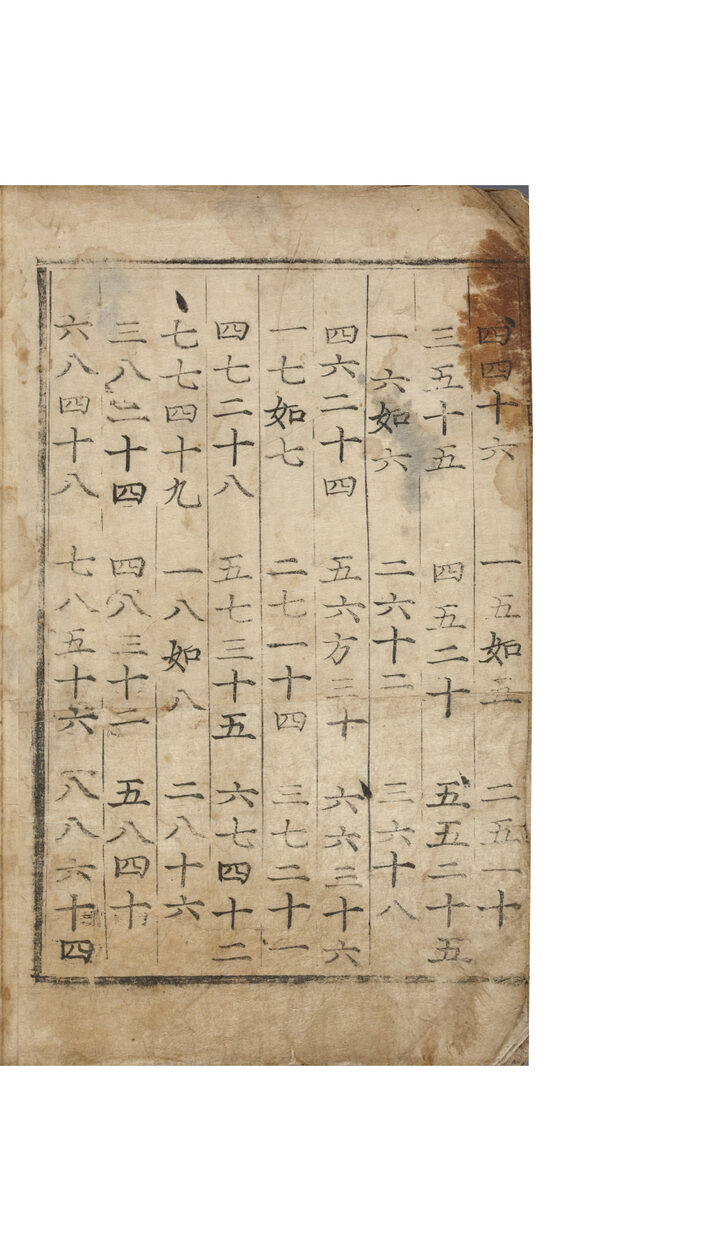 四四十六 一五如五 二五一十
三五十五 四五二十 五五二十五
一六如六 二六十二 三六十八
四六二十四 五六方三十 六六三十六
一七如七 二七一十四 三七二十一
四七二十八 五七三十五 六七四十二
七七四十九 一八如八 二八十六
三八二十四 四八三十二 五八四十
六八四十八 七八五十六 八八六十四